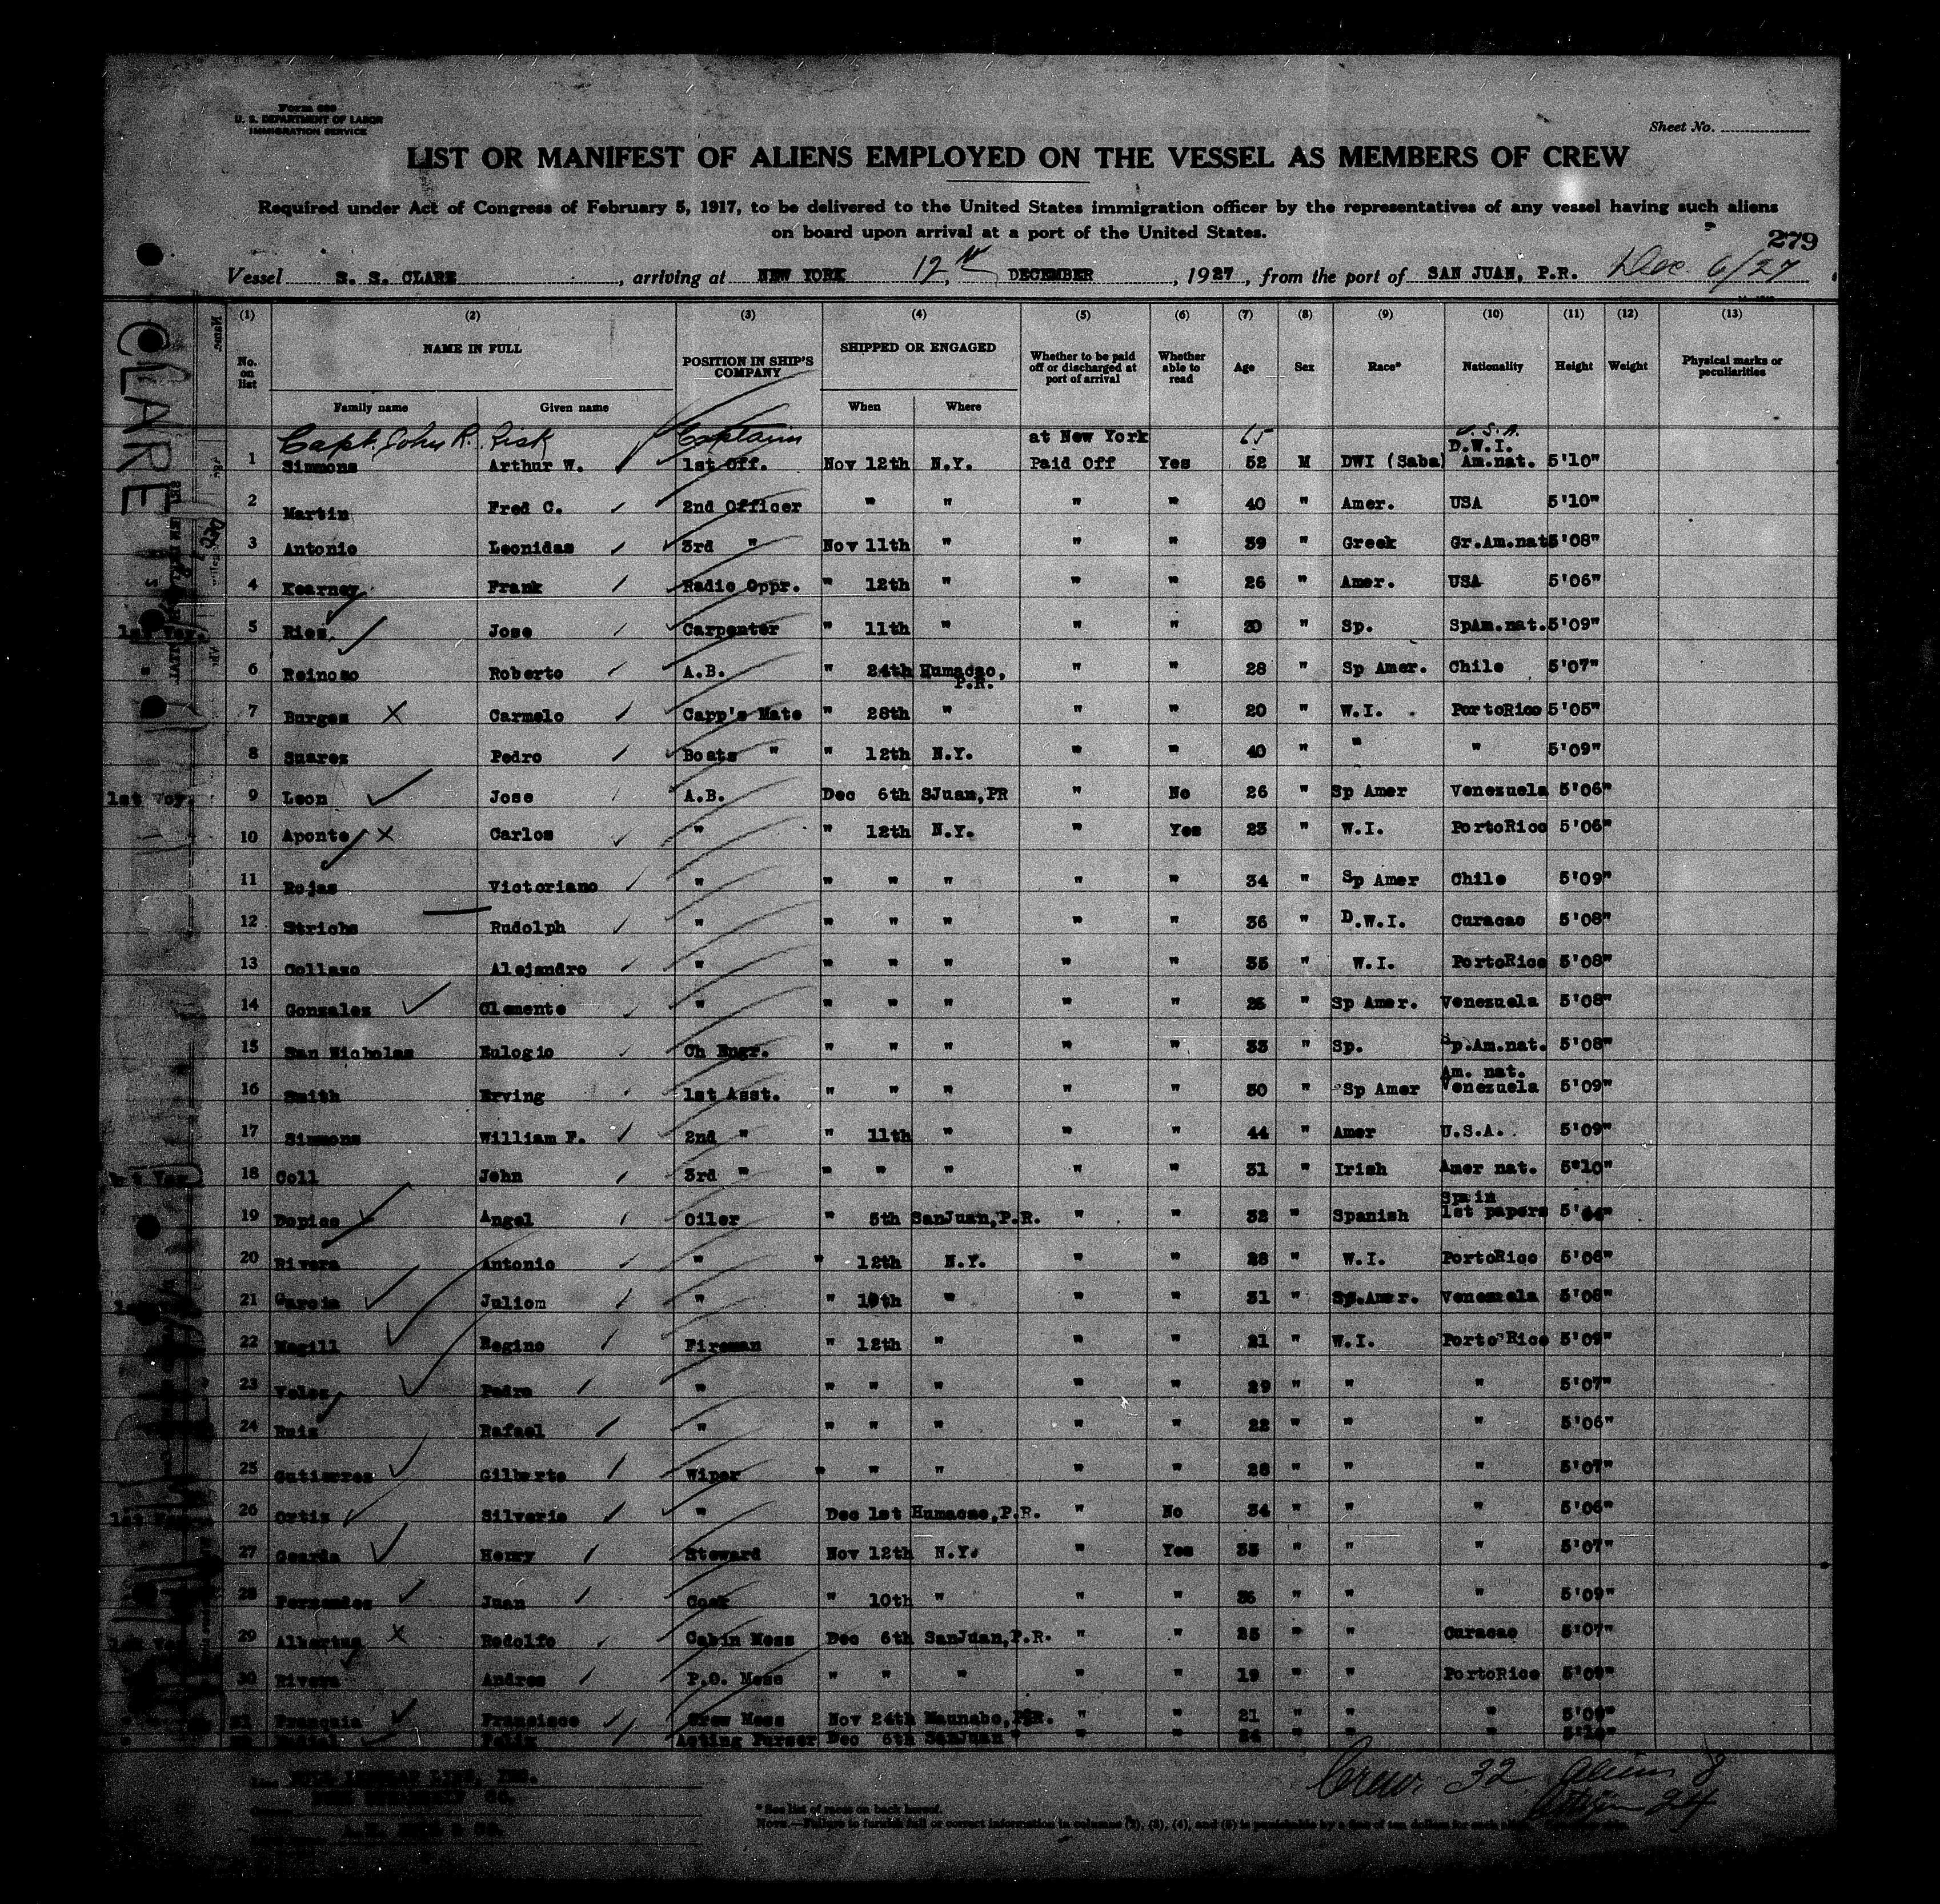 Form 680
U. S. DEPARTMENT OF LABOR
IMMIGRATION SERVICE
Sheet No.
LIST OR MANIFEST OF ALIENS EMPLOYED ON THE VESSEL AS MEMBERS OF CREW
Required under Act of Congress of February 5, 1917, to be delivered to the United States immigration officer by the representatives of any vessel having such aliens
on board upon arrival at a port of the United States.
279
Vessel S. S. CLARE, arriving at NEW YORK 12th, DECEMBER, 1927, from the port of SAN JUAN, P.R. Dec. 6/27
CLARE
(1) (2) (3) (4) (5) (6) (7) (8) (9) (10) (11) (12) (13)
No. on list NAME IN FULL POSITION IN SHIP'S COMPANY SHIPPED OR ENGAGED Whether to be paid off or discharged at port of arrival Whether able to read Age Sex Race* Nationality Height Weight Physical marks or peculiarities
Family name Given name When Where
Capt. John R. Captain at New York 65 U.S.A.
1 Simmons Arthur W. 1st Off. Nov 12th N.Y. Paid Off Yes 52 M DWI (Saba) D.W.I. Am.nat. 5'10"
2 Martin Fred C. 2nd Officer " " " " 40 " Amer. USA 5'10"
3 Antonio Leonidas 3rd " Nov 11th " " " 39 " Greek Gr.Am.nat 5'08"
4 Kearney Frank Radio Oppr. " 12th " " 26 " Amer. USA 5'06"
1st Voy. 5 Rios Jose Carpenter " 11th " " " 30 " Sp. SpAm.nat. 5'09"
" 6 Reinoso Roberto A.B. " 24th Humacao, P.R. " " 28 " Sp Amer. Chile 5'07"
7 Burgos X Carmelo Capp's Mate " 28th " " " 20 " W.I. PortoRico 5'05"
8 Suarez Pedro Boats " " 12th N.Y. " " 40 " " " 5'09"
1st Voy. 9 Leon Jose A.B. Dec 6th SJuan,PR " No 26 " Sp Amer Venezuela 5'06"
10 Aponte X Carlos " " 12th N.Y. " Yes 23 " W.I. PortoRico 5'06"
11 Rojas Victoriano " " " " " " 34 " Sp Amer Chile 5'09"
12 Strichs Rudolph " " " " " " 36 " D.W.I. Curacao 5'08"
13 Collazo Alejandro " " " " " " 35 " W.I. PortoRico 5'08"
14 Gonzales Clemente " " " " " " 25 " Sp Amer. Venezuela 5'08"
15 San Nicholas Eulogio Ch Engr. " " " " " 33 " Sp. Sp.Am.nat. 5'08"
16 Smith Erving 1st Asst. " " " " " 30 " Sp Amer Am. nat. Venezuela 5'09"
17 Simmons William F. 2nd " " 11th " " " 44 " Amer U.S.A. 5'09"
18 Coll John 3rd " " " " " " 31 " Irish Amer nat. 5'10"
19 Dopico Angel Oiler " 5th SanJuan,P.R. " " 32 " Spanish Spain 1st papers
20 Rivera Antonio " " 12th N.Y. " " 28 " W.I. PortoRico 5'06"
21 Garcia Juliom " " 10th " " " 31 " Sp.Amer. Venezuela 5'08"
22 Magill Regino Fireman " 12th " " " 21 " W.I. Porto Rico 5'09"
23 Velez Pedro " " " " " " 29 " " " 5'07"
24 Ruiz Rafael " " " " " " 22 " " " 5'06"
25 Gutierrez Gilberto Wiper " " " " " 28 " " " 5'07"
26 Ortiz Silverio " Dec 1st Humacao,P.R. " No 34 " " " 5'06"
27 Henry Steward Nov 12th N.Y. " Yes 33 " " " 5'07"
28 Fernandez Juan Cook " 10th " " " 36 " " " 5'09"
29 Albertus X Rodolfo Cabin Mess Dec 6th SanJuan,P.R. " " 25 " " Curacao 5'07"
30 Rivera Andres P.O. Mess " " " " " 19 " " PortoRico 5'09"
31 Francisco Crew Mess Nov 24th Maunabo, P.R. " " 21 " " " 5'09"
Felix Acting Purser Dec 6th SanJuan " " " 24 " " "
Crew 32 Aliens 8
24
* See list of races on back hereof.
NOTE.—Failure to furnish full or correct information in columns (2), (3), (4), and (5) is punishable by a fine of ten dollars for each alien.